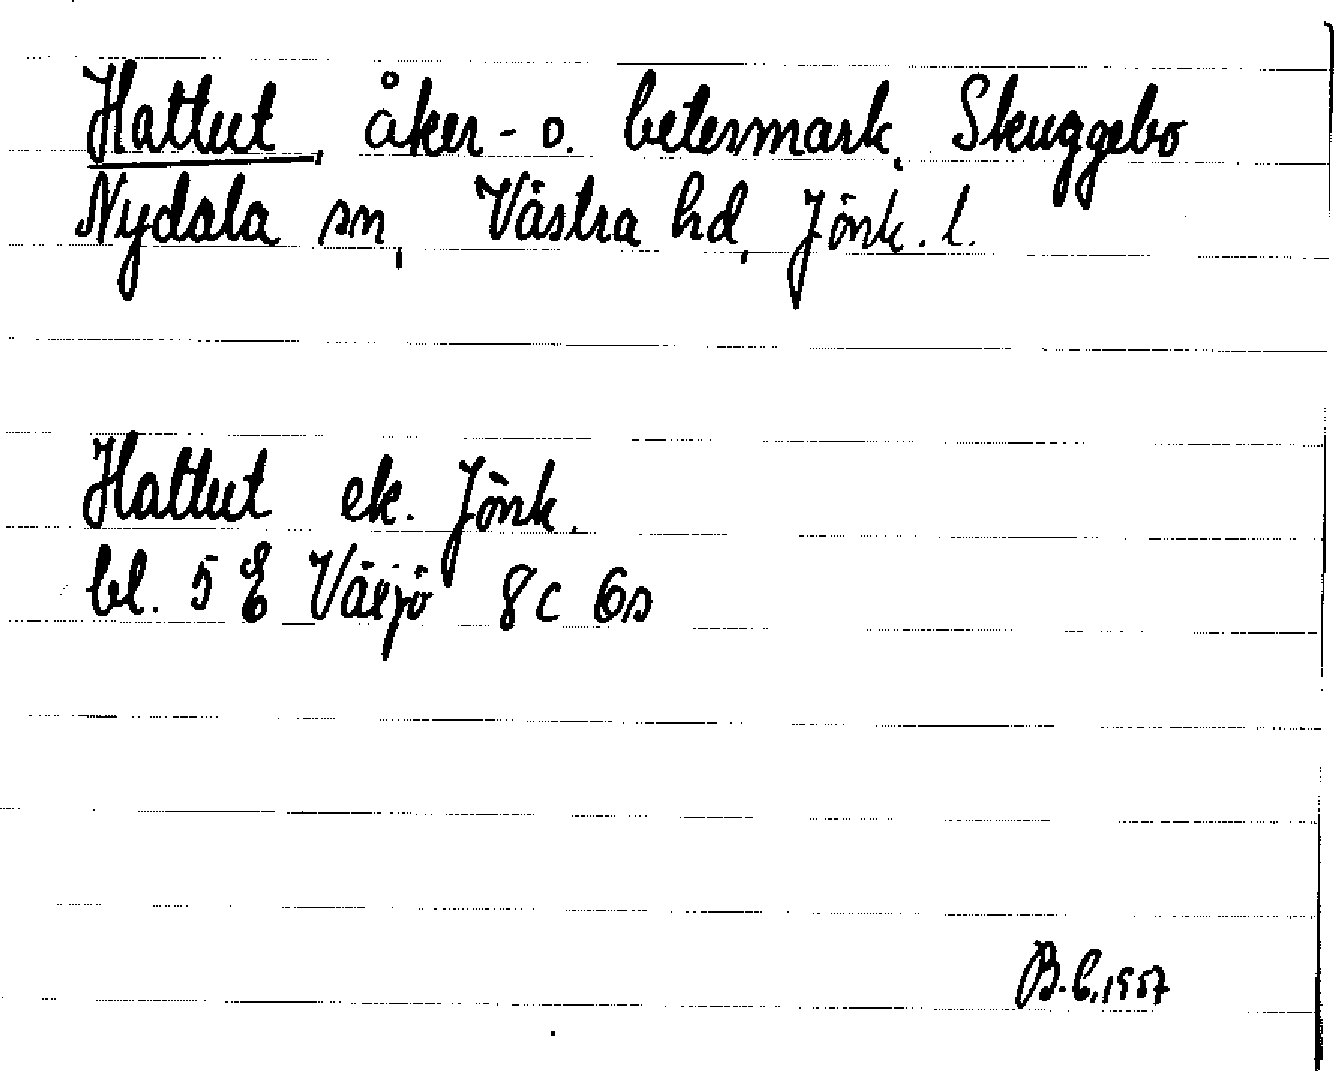 Hattut, åker- o. betesmark, Skuggebo
Nydala sn, Västra hd, Jönk. l.
Hattut ek. Jönk.
bl. 5 E Växjö 8c 6s
B.E. 1957